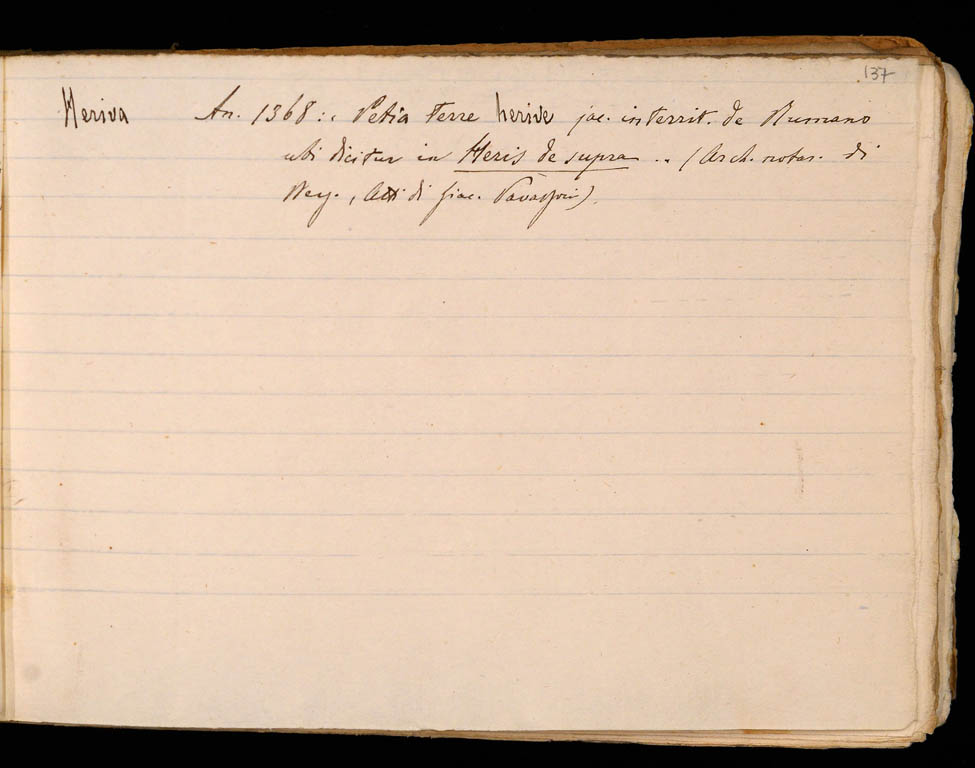 137
Heriva An. 1368: . Petia terre herive jac. in territ. de Rumano
ubi dicitur in Heris de supra .. (Arch. notar. di
Berg., Atti di Giac. Vavassori).